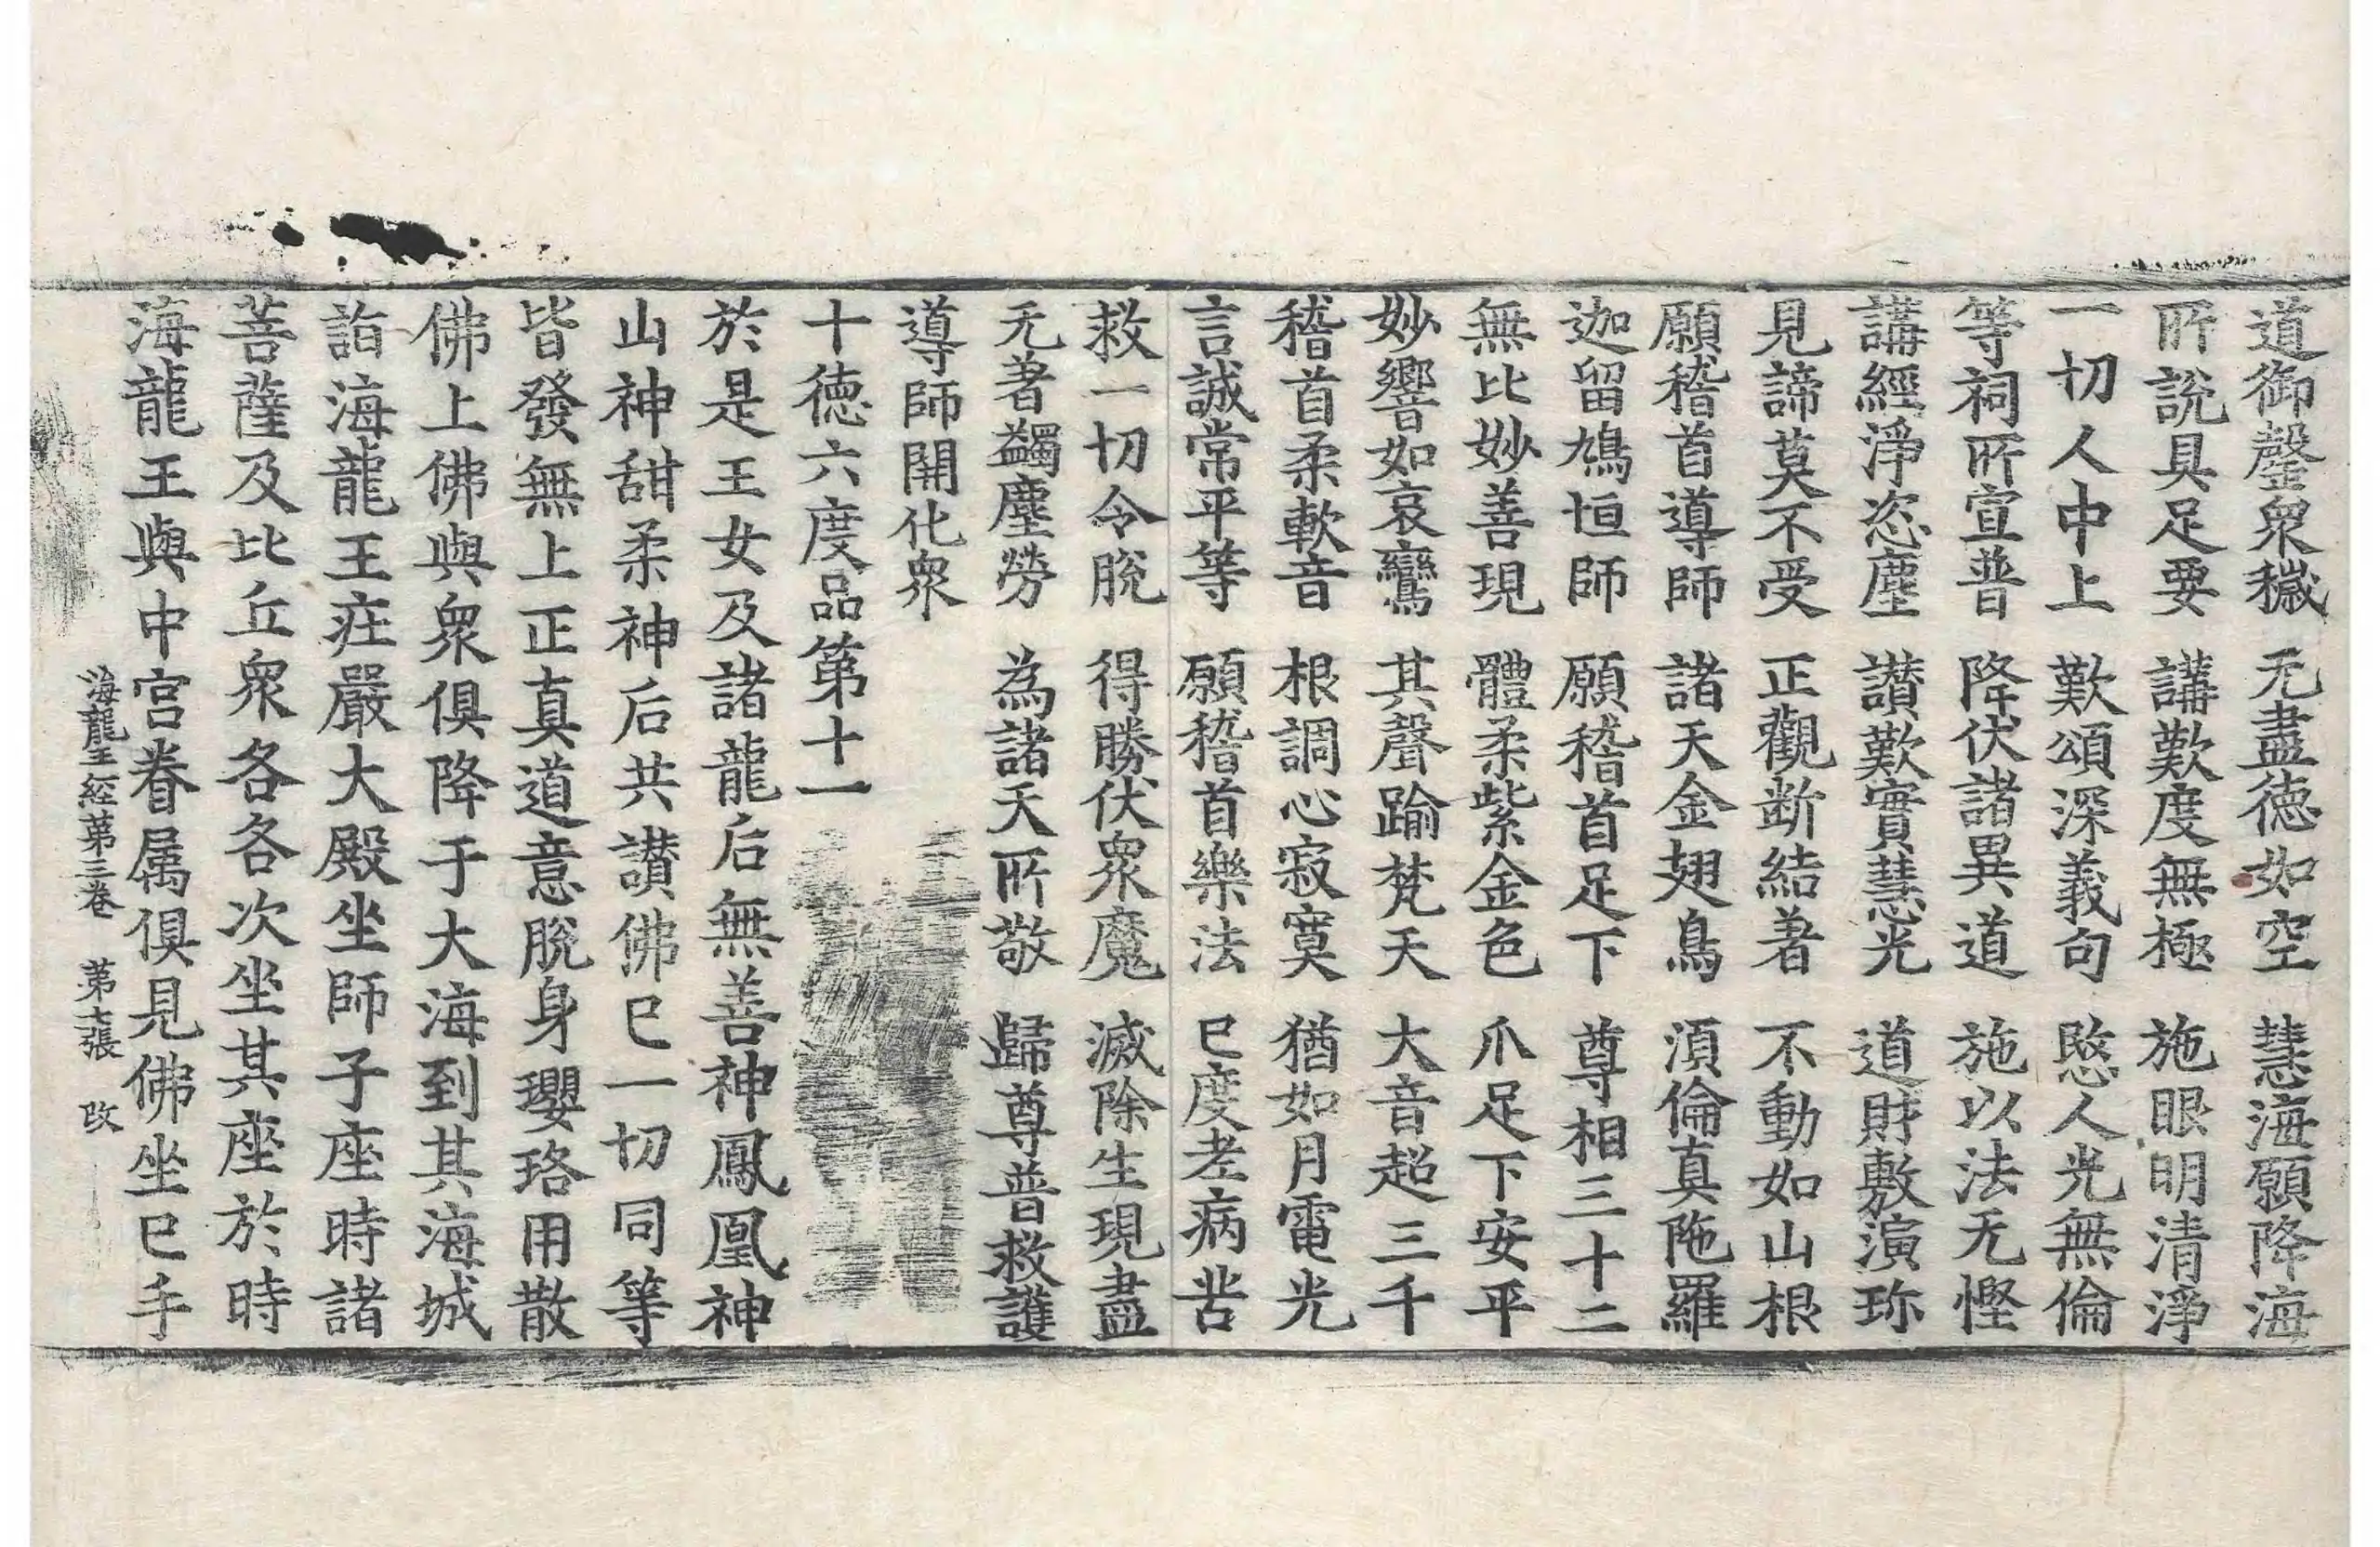 道御罄衆穢　无盡德如空　慧海願降海
所說具足要　講歎度無極　施眼明清淨
一切人中上　歎頌深義句　愍人光無倫
等祠所宣普　降伏諸異道　施以法无慳
講經淨恣塵　讃歎實慧光　道財敷演珎
見諦莫不受　正觀断結著　不動如山根
願稽首導師　諸天金翅鳥　湏倫真陁羅
迦留鳩恒師　願稽首足下　尊相三十二
無比妙善現　體柔紫金色　爪足下安平
妙響如哀鸞　其聲踰梵天　大音超三千
稽首柔軟音　根調心寂寞　猶如月電光
言誠常平等　願稽首樂法　已度老病苦
救一切令脫　得勝伏衆魔　滅除生現盡
无著蠲塵勞　為諸天所敬　歸尊普救護
導師開化衆
十德六度品第十一
於是王女及諸龍后無善神鳳凰神
山神甜柔神后共讃佛已一切同等
皆發無上正真道意脫身瓔珞用散
佛上佛與衆俱降于大海到其海城
詣海龍王莊嚴大殿坐師子座時諸
菩薩及比丘衆各各次坐其座於時
海龍王與中宮眷属俱見佛坐已手
海龍王經第三卷　第七張　改